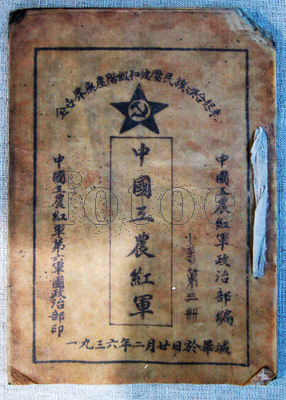 全世界無產階級和被壓民族联合起來
中國工農紅軍政治部編
第三冊
中國工農紅軍
中國工農紅軍第六軍團政治部印
一九三六年二月廿日於畢城